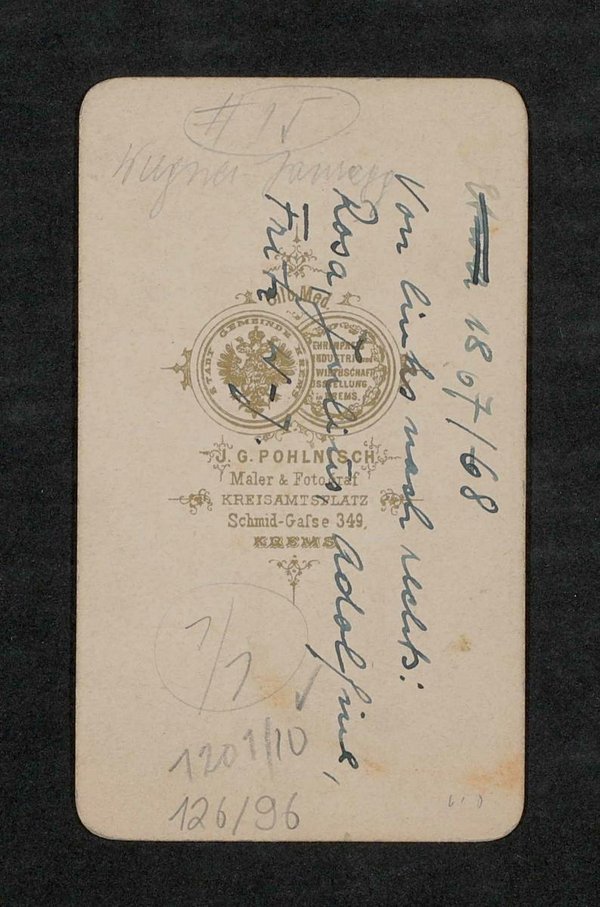 # 15
Wagner-Jauregg
1867/68
Von links nach rechts:
Rosa, Julius, Adolfine,
Fritz W-J.
Silb. Med.
STADT GEMEINDE KREMS
EHRENPREIS
INDUSTRIE und
WIRTHSCHAFT
AUSSTELLUNG
KREMS.
J. G. POHLNITSCH
Maler & Fotograf
KREISAMTSPLATZ
Schmid-Gaſse 349,
KREMS
1/1
1201/10
126/96